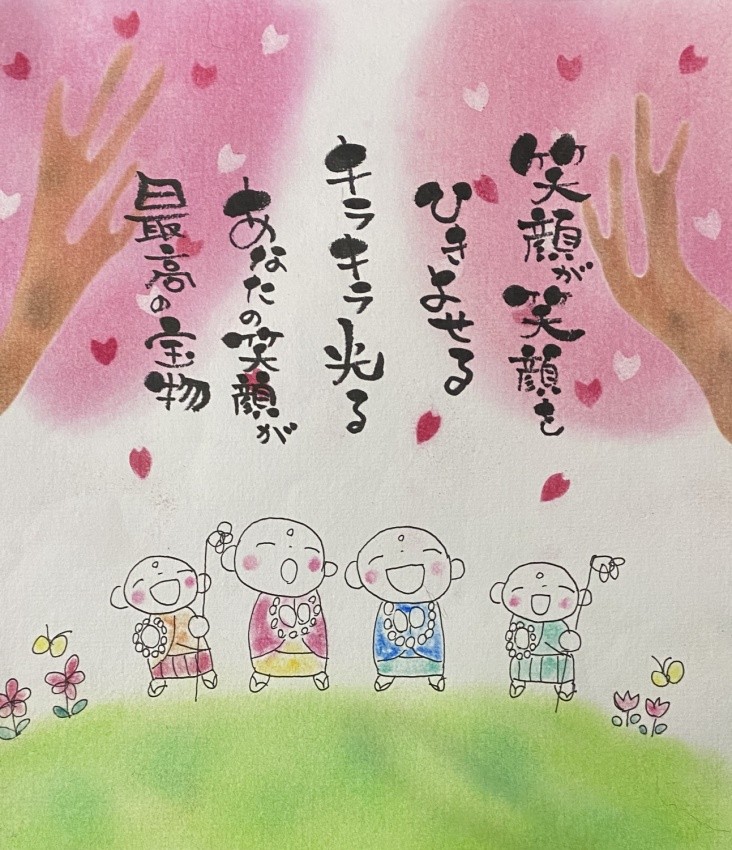 笑顔が笑顔を
ひきよせる
キラキラ光る
あなたの笑顔が
最高の宝物